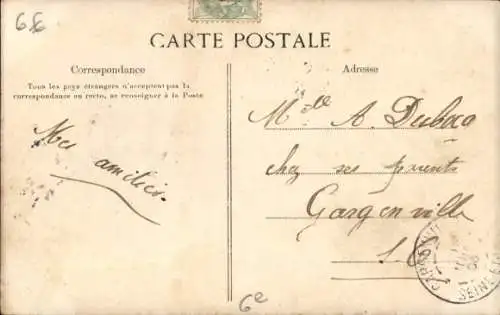 6€
CARTE POSTALE
Correspondance
Tous les pays étrangers n'acceptent pas la
correspondance au recto, se renseigner à la Poste
Mes
amitiés.
Adresse
Melle A. Dubocq
chez ses parents
Gargenville
S.
6e